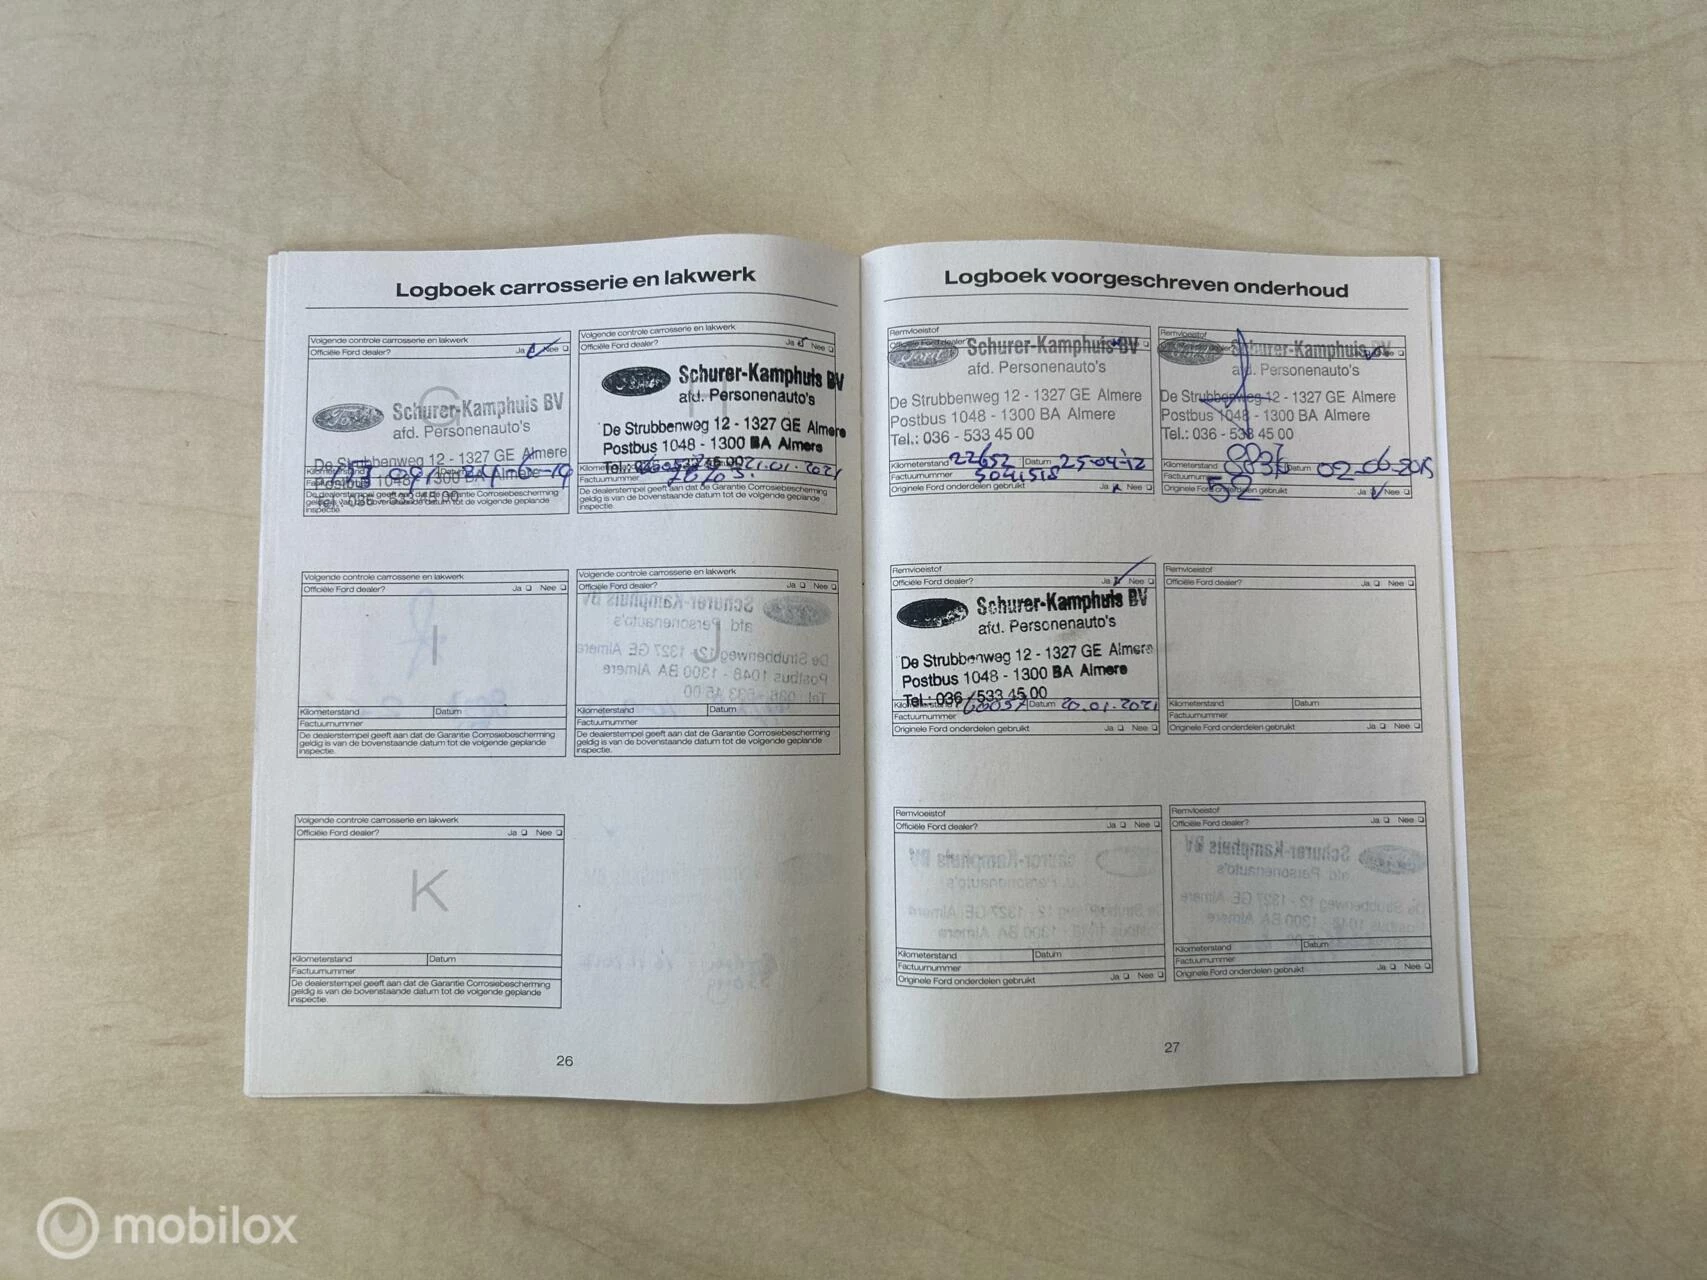 Logboek carrosserie en lakwerk
Volgende controle carrosserie en lakwerk
Officiële Ford dealer? Ja Nee
G
Ford
Schurer-Kamphuis BV
afd. Personenauto's
De Strubbenweg 12 - 1327 GE Almere
Postbus 1048 - 1300 BA Almere
Tel.: 036 - 533 45 00
Kilometerstand Datum
De dealerstempel geeft aan dat de Garantie Corrosiebescherming
geldig is van de bovenstaande datum tot de volgende geplande
inspectie.
Volgende controle carrosserie en lakwerk
Officiële Ford dealer? Ja Nee
H
Schurer-Kamphuis BV
afd. Personenauto's
De Strubbenweg 12 - 1327 GE Almere
Postbus 1048 - 1300 BA Almere
Tel.: 036 - 533 45 00
21.01.2021
Factuurnummer
De dealerstempel geeft aan dat de Garantie Corrosiebescherming
geldig is van de bovenstaande datum tot de volgende geplande
inspectie.
Volgende controle carrosserie en lakwerk
Officiële Ford dealer? Ja Nee
I
Kilometerstand Datum
Factuurnummer
De dealerstempel geeft aan dat de Garantie Corrosiebescherming
geldig is van de bovenstaande datum tot de volgende geplande
inspectie.
Volgende controle carrosserie en lakwerk
Officiële Ford dealer? Ja Nee
J
Kilometerstand Datum
Factuurnummer
De dealerstempel geeft aan dat de Garantie Corrosiebescherming
geldig is van de bovenstaande datum tot de volgende geplande
inspectie.
Volgende controle carrosserie en lakwerk
Officiële Ford dealer? Ja Nee
K
Kilometerstand Datum
Factuurnummer
De dealerstempel geeft aan dat de Garantie Corrosiebescherming
geldig is van de bovenstaande datum tot de volgende geplande
inspectie.
26
Logboek voorgeschreven onderhoud
Remvloeistof
Officiële Ford dealer?
Ford
Schurer-Kamphuis BV
afd. Personenauto's
De Strubbenweg 12 - 1327 GE Almere
Postbus 1048 - 1300 BA Almere
Tel.: 036 - 533 45 00
Kilometerstand 22652 Datum 25-04-12
Factuurnummer 5041518
Originele Ford onderdelen gebruikt Ja Nee
Remvloeistof
Schurer-Kamphuis BV
afd. Personenauto's
De Strubbenweg 12 - 1327 GE Almere
Postbus 1048 - 1300 BA Almere
Tel.: 036 - 533 45 00
Kilometerstand Datum 02-06-2015
Originele Ford onderdelen gebruikt Ja Nee
Remvloeistof
Officiële Ford dealer? Ja Nee
Schurer-Kamphuis BV
afd. Personenauto's
De Strubbenweg 12 - 1327 GE Almere
Postbus 1048 - 1300 BA Almere
Tel.: 036 / 533 45 00
Kilometerstand 60057 Datum 20.01.2021
Factuurnummer
Originele Ford onderdelen gebruikt Ja Nee
Remvloeistof
Officiële Ford dealer? Ja Nee
Kilometerstand Datum
Factuurnummer
Originele Ford onderdelen gebruikt Ja Nee
Remvloeistof
Officiële Ford dealer? Ja Nee
Kilometerstand Datum
Factuurnummer
Originele Ford onderdelen gebruikt Ja Nee
Remvloeistof
Officiële Ford dealer? Ja Nee
Kilometerstand Datum
Factuurnummer
Originele Ford onderdelen gebruikt Ja Nee
27
mobilox